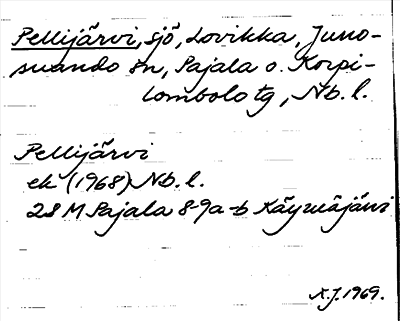 Pellijärvi, sjö, Lovikka, Juno-
suando sn, Pajala o. Korpi-
lombolo tg, Nb. l.
Pellijärvi
ek (1968) Nb. l.
28 M Pajala 8-9a-b Käymäjärvi
X.J. 1969.